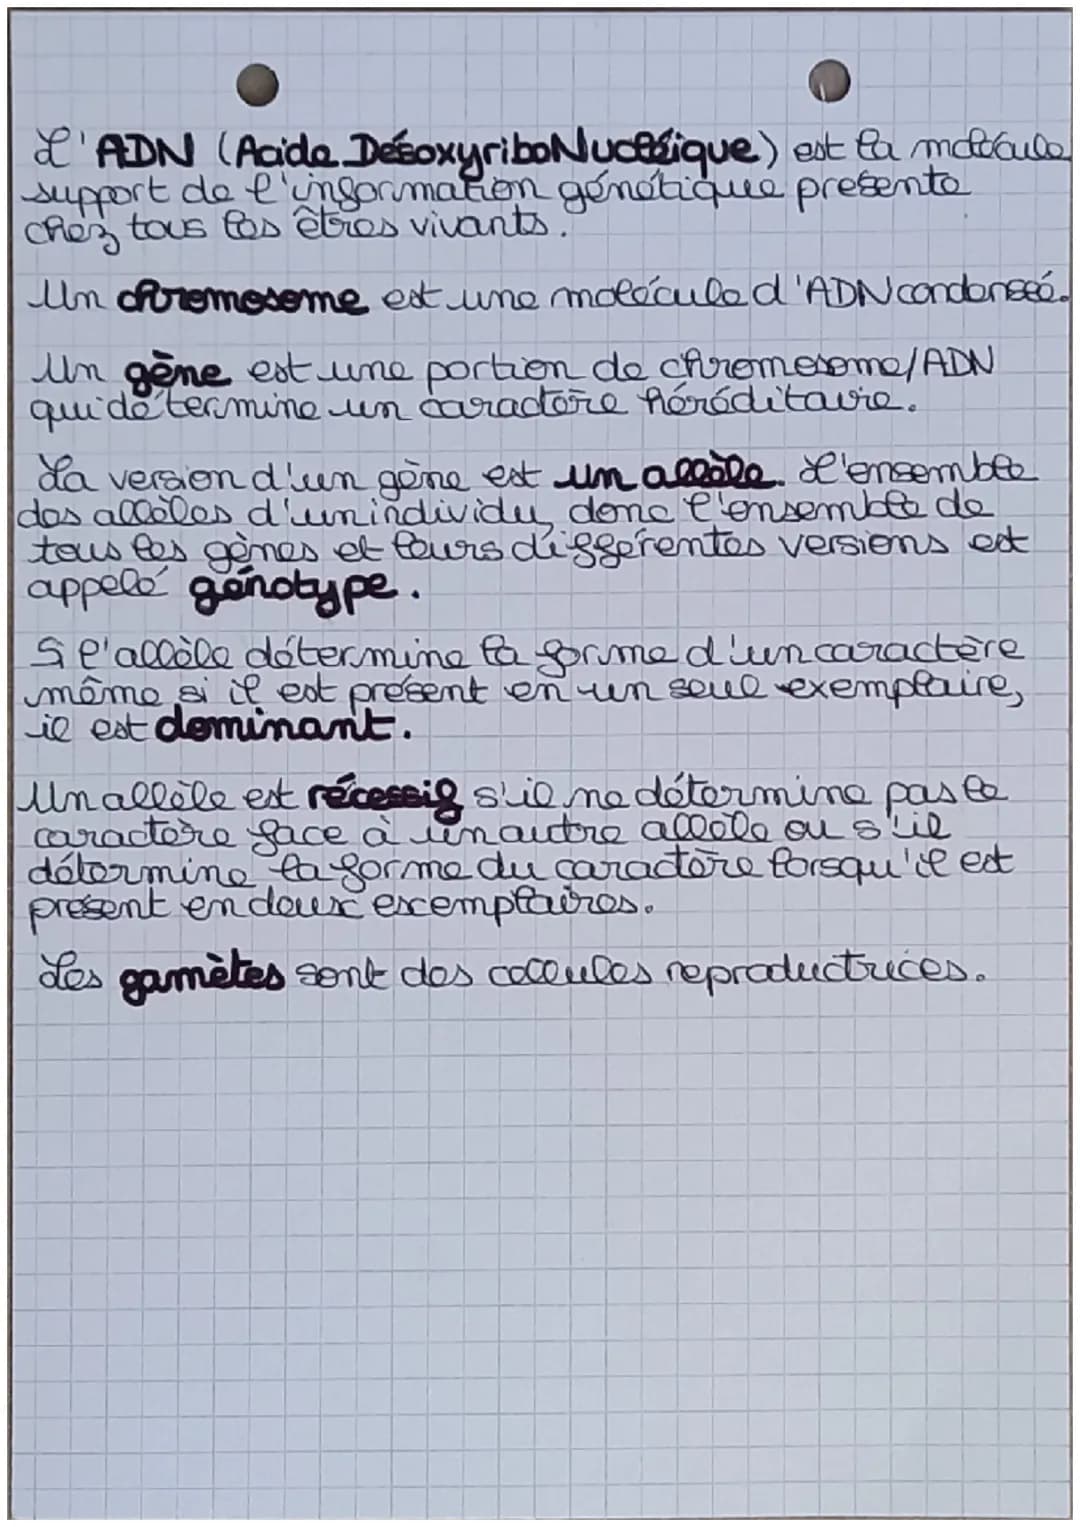 L'ADN (Acide DésoxyriboNucléique) est la molécule
support de l'information génétique présente
chez tous les êtres vivants.
Un chromosome est une molécule d'ADN condensé.
Un gène est une portion de chromosome/ADN
qui détermine un caractère héréditaire.
La version d'un gène est un allèle. L'ensemble
des allèles d'un individu, donc l'ensemble de
tous les gènes et leurs différentes versions est
appelé génotype.
Si l'allèle détermine la forme d'un caractère
même si il est présent en un seul exemplaire,
il est dominant.
Un allèle est récessif s'il ne détermine pas le
caractère face à un autre allèle ou s'il
détermine la forme du caractère lorsqu'il est
présent en deux exemplaires.
Les gamètes sont des cellules reproductrices.